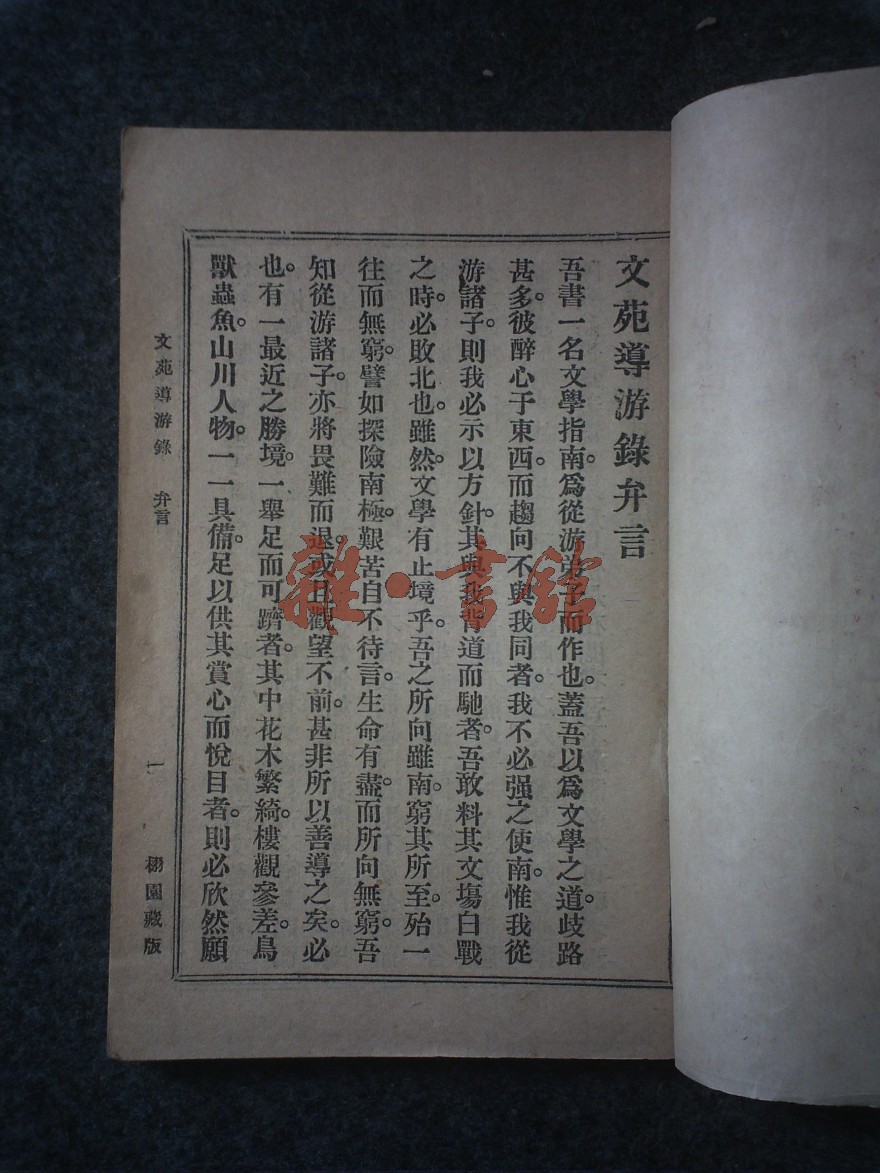 文苑導游錄弁言
吾書一名文學指南。爲從游弟子而作也。蓋吾以爲文學之道。歧路
甚多。彼醉心于東西。而趨向不與我同者。我不必强之使南。惟我從
游諸子。則我必示以方針。其與我背道而馳者。吾敢料其文塲白戰
之時。必敗北也。雖然。文學有止境乎。吾之所向雖南。窮其所至。殆一
往而無窮。譬如探險南極。艱苦自不待言。生命有盡。而所向無窮。吾
知從游諸子。亦將畏難而退。或且觀望不前。甚非所以善導之矣。必
也。有一最近之勝境。一舉足而可躋者。其中花木繁綺。樓觀參差。鳥
獸蟲魚。山川人物。一一具備。足以供其賞心而悅目者。則必欣然願
文苑導游錄 弁言 一 栩園藏版
雜·書館